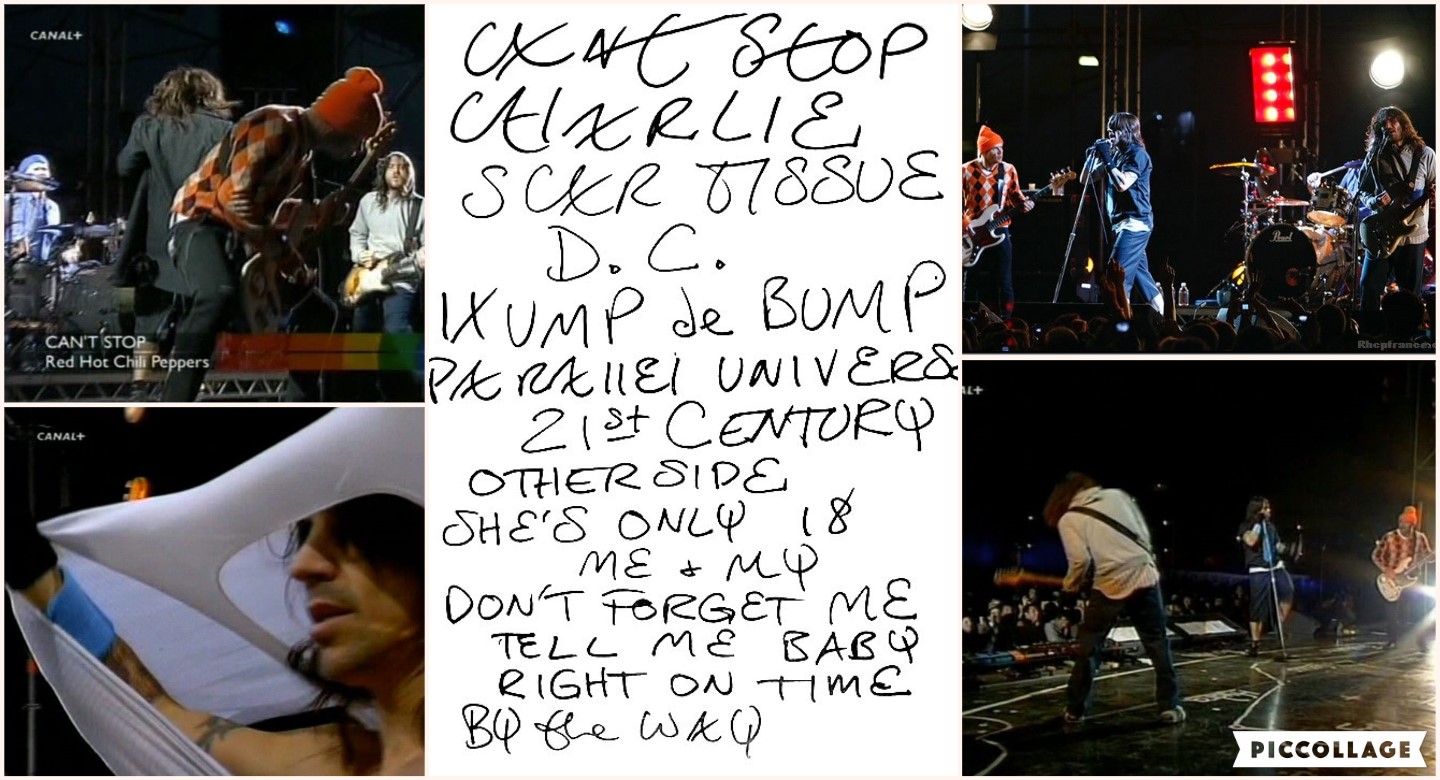 CANAL+
CAN'T STOP
Red Hot Chili Peppers
CANAL+
CAN'T STOP
CHARLIE
SCAR TISSUE
D. C.
THUMP de BUMP
PARAllEl UNIVERSE
21st CENTURY
OTHERSIDE
SHE'S ONLY 18
ME + MY
DON'T FORGET ME
TELL ME BABY
RIGHT ON TIME
BY the WAY
Pearl
Rhcpfrance.c
AL+
PICCOLLAGE